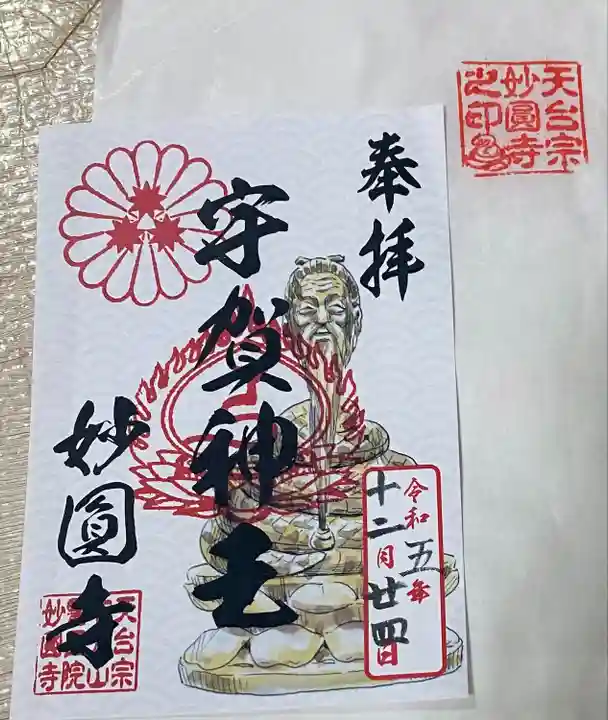 奉拝
宇賀神王
妙圓寺
令和五年
十二月廿四日
天台宗
妙圓寺
之印
天台宗
山
院
妙圓寺